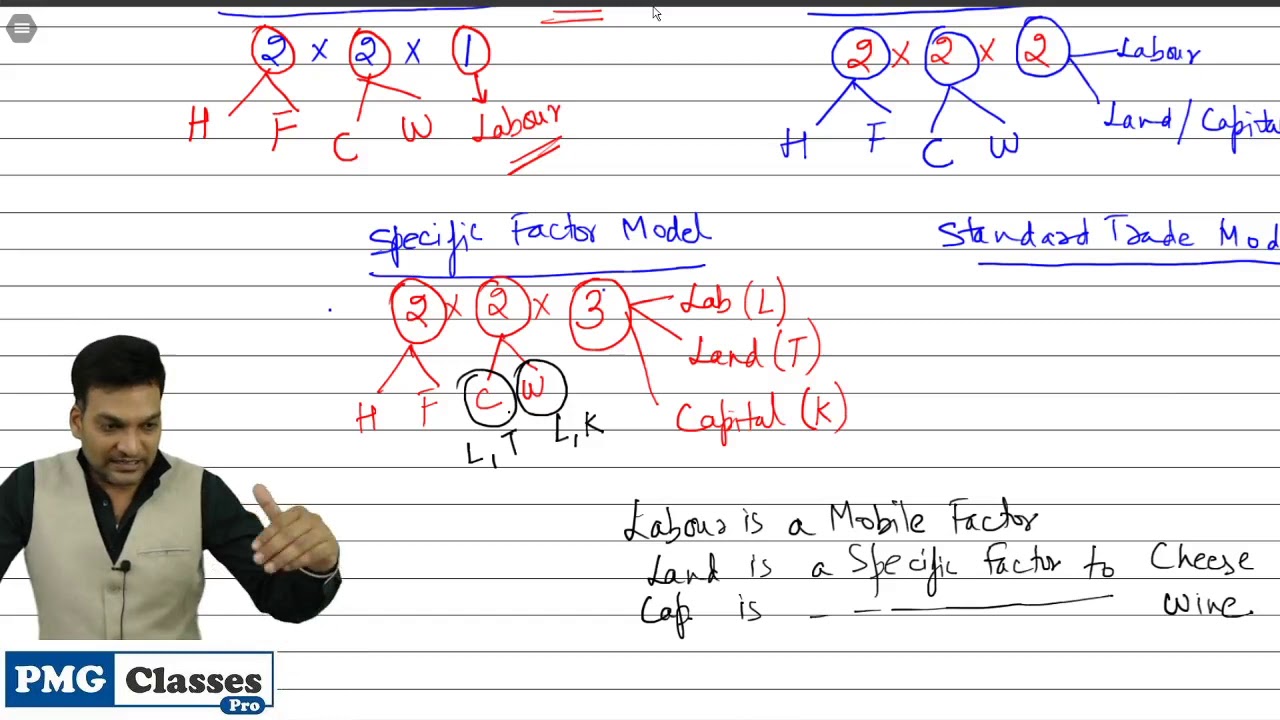 2 × 2 × 1
H F C W Labour
2 × 2 × 2 Labour
Land / Capital
H F C W
Specific Factor Model
2 × 2 × 3 Lab (L)
Land (T)
Capital (K)
H F C W
L, T L, K
Standard Trade Mod
Labour is a Mobile Factor
Land is a Specific factor to Cheese
Cap. is _ _ _ Wine
PMG Classes
Pro